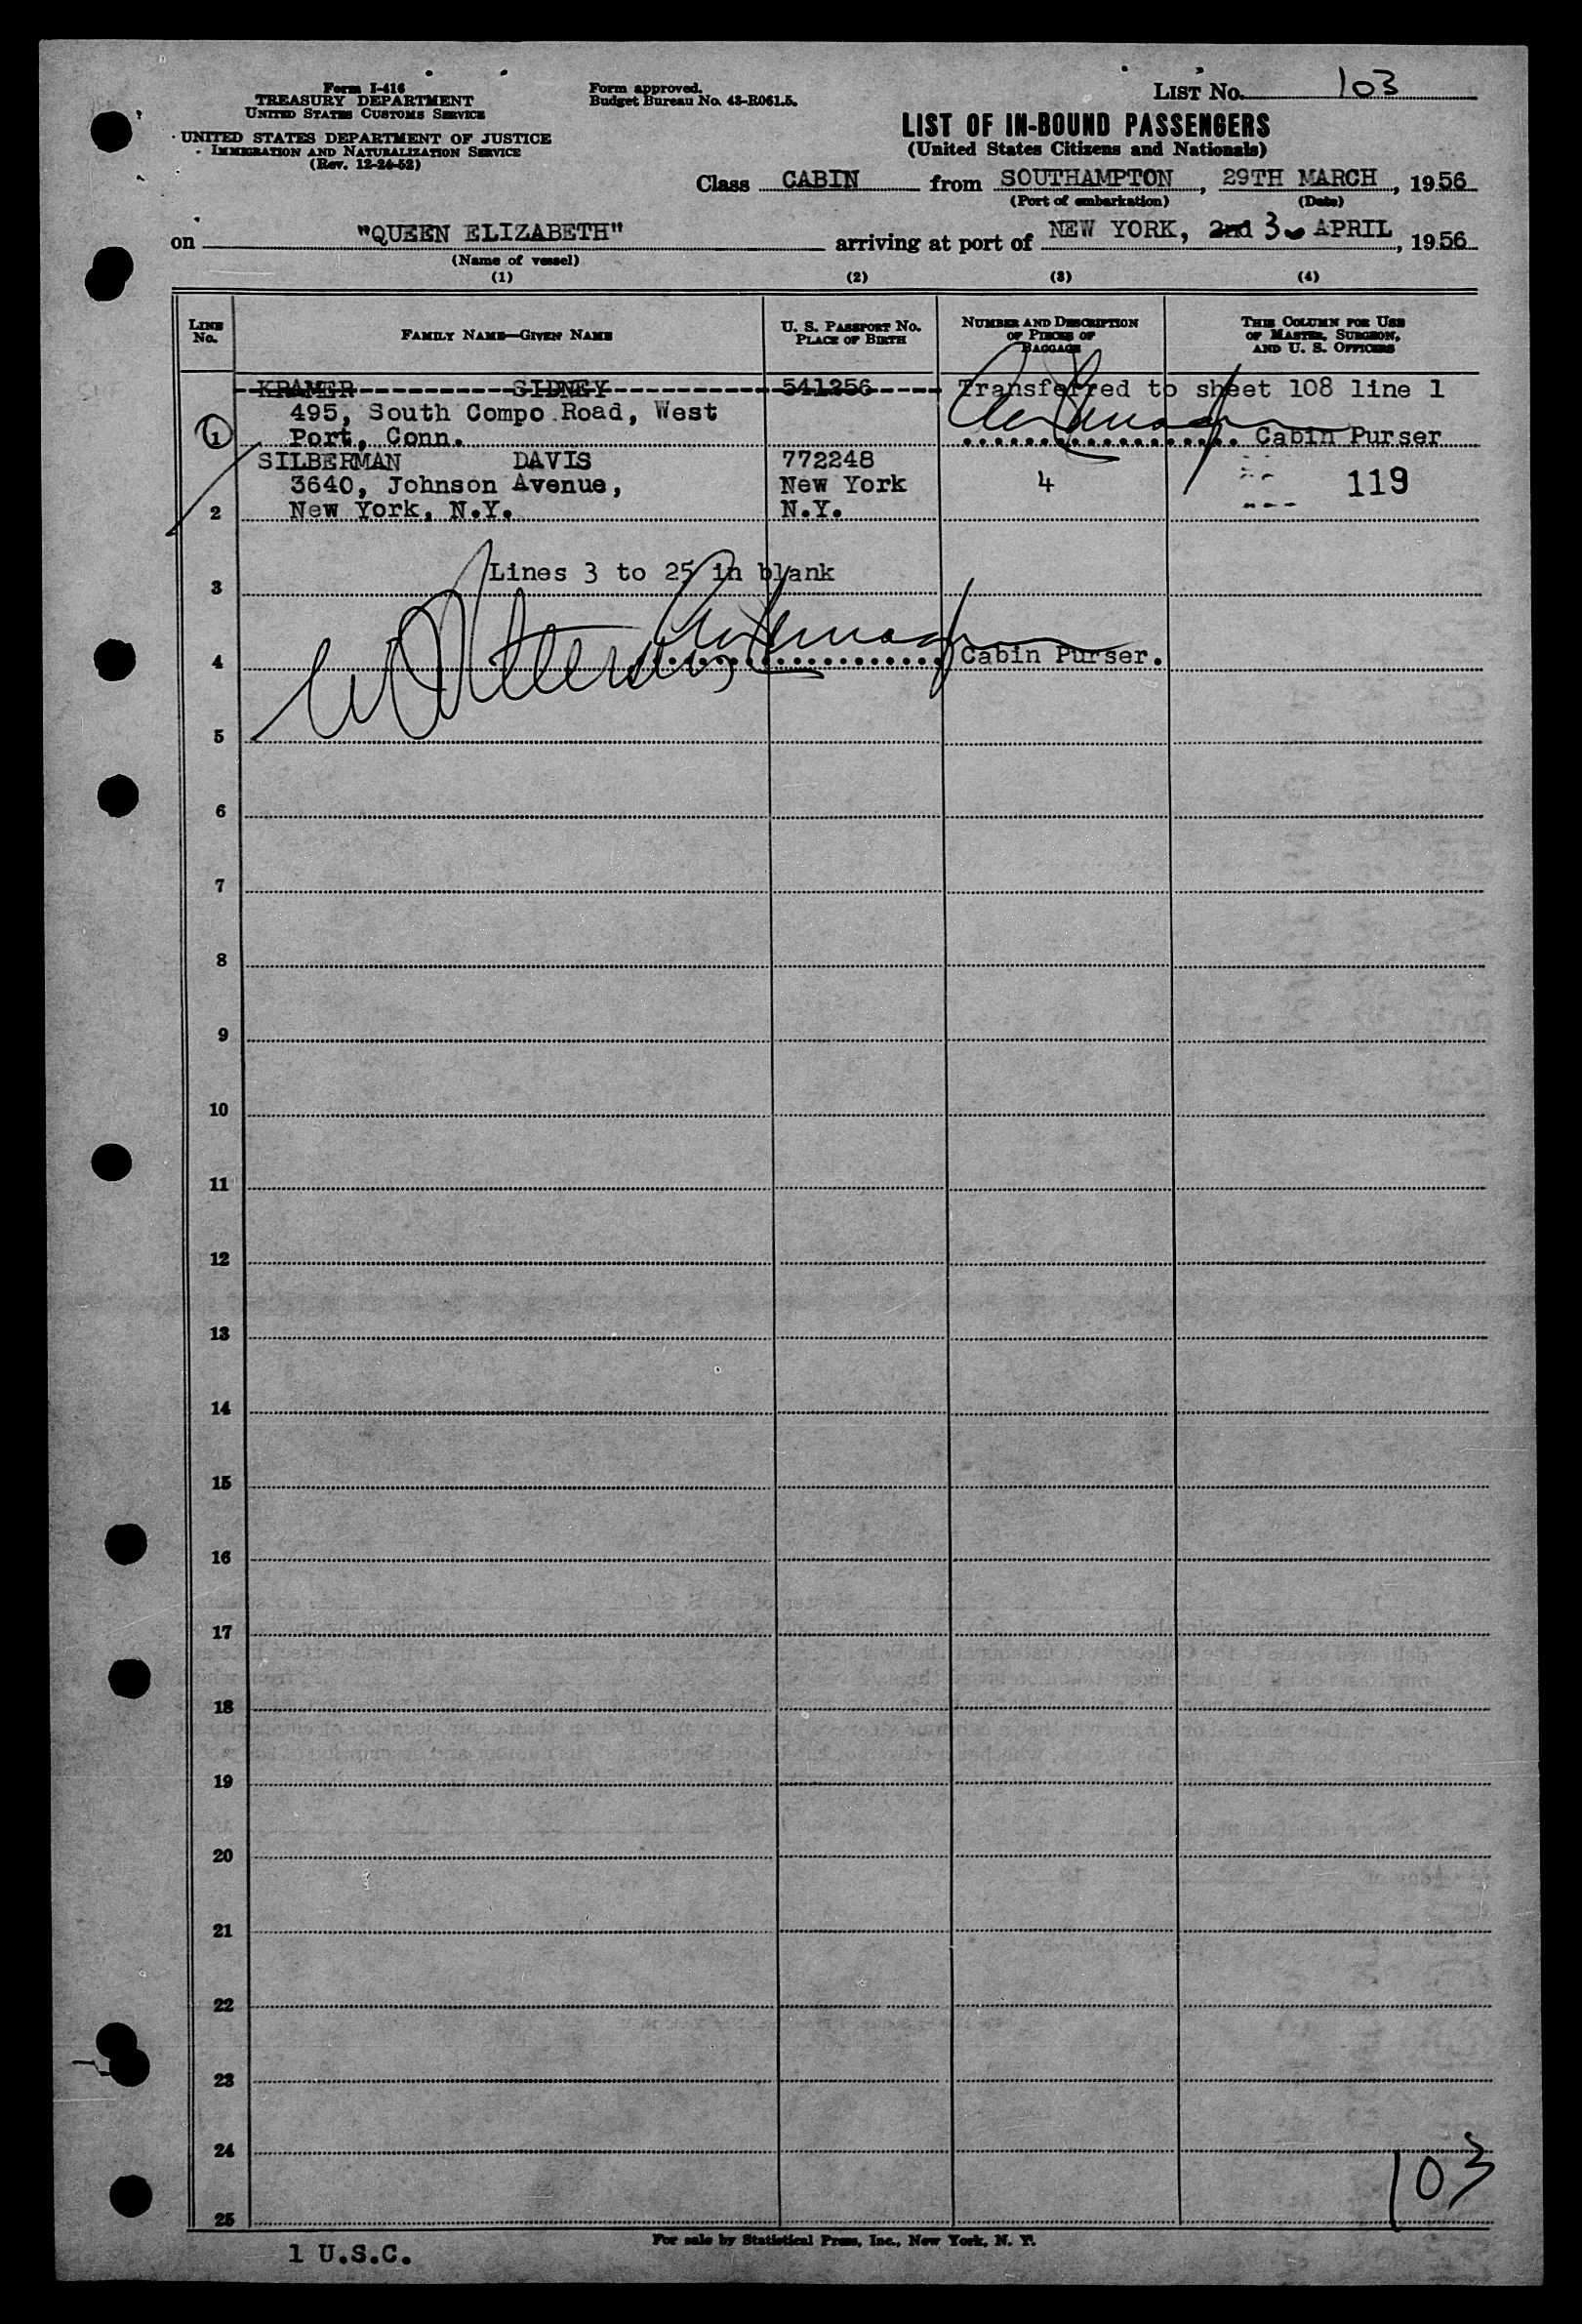 Form I-416
TREASURY DEPARTMENT
UNITED STATES CUSTOMS SERVICE
UNITED STATES DEPARTMENT OF JUSTICE
IMMIGRATION AND NATURALIZATION SERVICE
(Rev. 12-24-52)
Form approved.
Budget Bureau No. 43-R061.5.
LIST No. 103
LIST OF IN-BOUND PASSENGERS
(United States Citizens and Nationals)
Class CABIN from SOUTHAMPTON, 29TH MARCH, 1956
(Port of embarkation) (Date)
on "QUEEN ELIZABETH" arriving at port of NEW YORK, 2nd 3 APRIL, 1956
(Name of vessel)
(1) (2) (3) (4)
LINE No. FAMILY NAME—GIVEN NAME U. S. PASSPORT No. PLACE OF BIRTH NUMBER AND DESCRIPTION OF PIECES OF BAGGAGE THIS COLUMN FOR USE OF MASTER, SURGEON, AND U. S. OFFICERS
KRAMER SIDNEY 541256 Transferred to sheet 108 line 1
495, South Compo Road, West
1 Port, Conn. Cabin Purser
SILBERMAN DAVIS 772248
3640, Johnson Avenue, New York 4 119
2 New York, N.Y. N.Y.
Lines 3 to 25 in blank
3
4 Cabin Purser.
5
6
7
8
9
10
11
12
13
14
15
16
17
18
19
20
21
22
23
24
103
25
For sale by Statistical Press, Inc., New York, N. Y.
1 U.S.C.